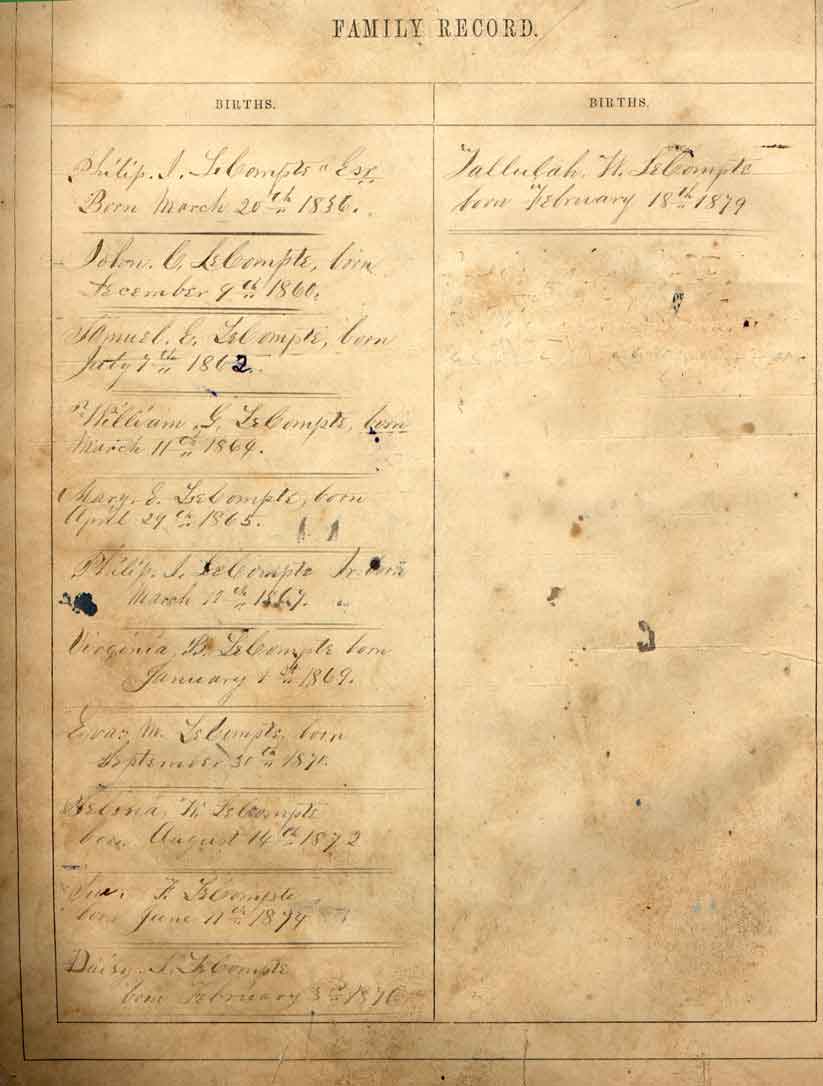 FAMILY RECORD.
BIRTHS.
Philip. J. LeCompte Esq
Born March 20th 1836.
John. C. LeCompte, born
December 9th 1860.
Samuel. E. LeCompte, born
July 7th 1862.
William. G. LeCompte, born
March 11th 1864.
Mary. E. LeCompte, born
April 29th 1865.
Philip. J. LeCompte Jr. born
March 12th 1867.
Virginia. B. LeCompte born
January 1st 1869.
M. LeCompte, born
September 30th 1870.
W. LeCompte
born August 14th 1872
F. LeCompte
born June 11th 1874
Daisy. J. LeCompte
born February 3rd 1876
BIRTHS.
Tallulah. W. LeCompte
born February 18th 1879